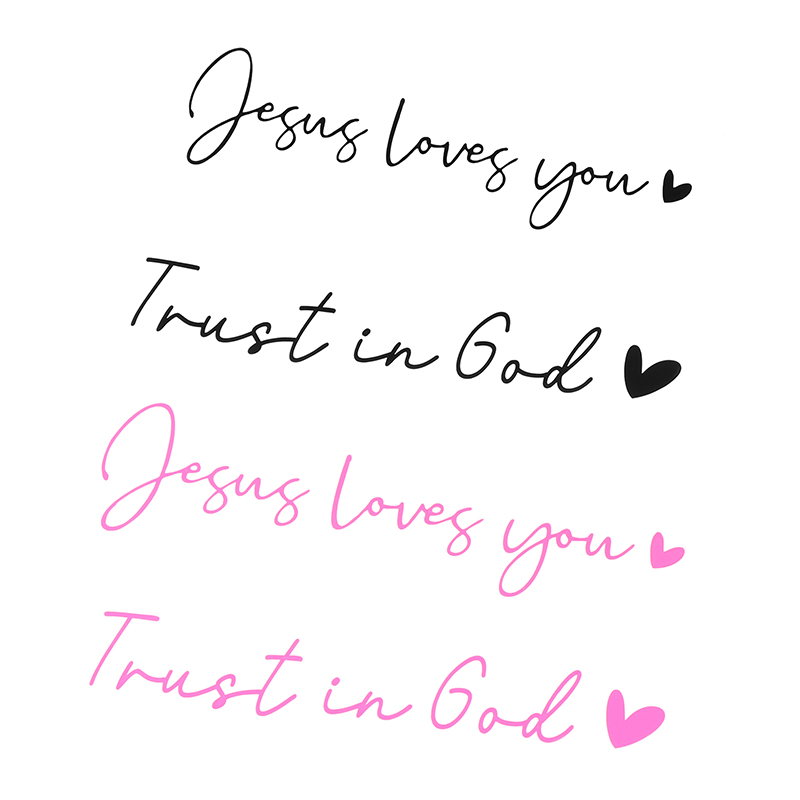 Jesus loves you
Trust in God
Jesus loves you
Trust in God